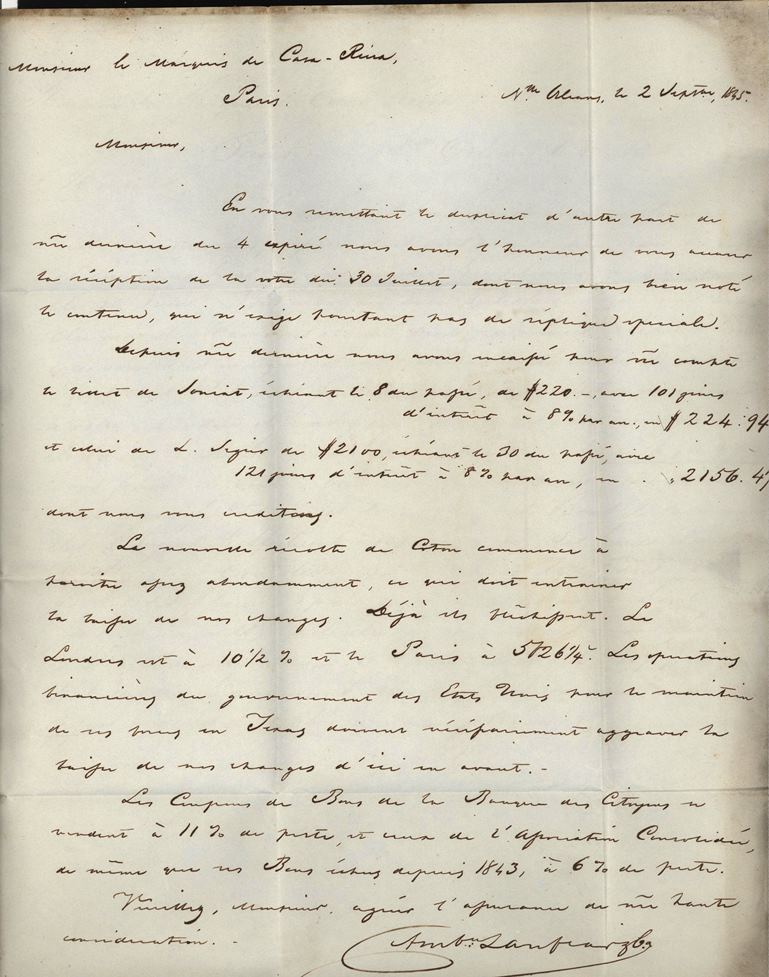 Monsieur le Marquis de Casa-Riera,
Paris.
Nlle Orléans, le 2 Septbre, 1845.
Monsieur,
En vous remettant le duplicat d'autre part de
nre dernière du 4 expiré nous avons l'honneur de vous accuser
la réception de la votre du 30 Juillet, dont nous avons bien noté
le contenu, qui n'exige pourtant pas de réplique spéciale.
Depuis nre dernière nous avons encaissé pour vre compte
le billet de Soniat, échéant le 8 du passé, de $220.-, avec 101 jours
d'intérêt à 8% par an, en $224.94
et celui de L. Segur de $2100, échéant le 30 du passé, avec
121 jours d'intérêt à 8% par an, en . 2156.47
dont nous vous créditons.
La nouvelle récolte de Coton commence à
paroître assez abondamment, ce qui doit entrainer
la baisse de nos changes. Déjà ils fléchissent. Le
Londres est à 10 1/2 % et le Paris à 5f26 1/4. Les opérations
financières du gouvernement des Etats Unis pour le maintien
de ses forces en Texas doivent nécessairement aggraver la
baisse de nos changes d'ici en avant.-
Les Coupons de Bons de la Banque des Citoyens se
vendent à 11% de perte, et ceux de l'Association Consolidée,
de même que ses Bons échus depuis 1843, à 6% de perte.
Veuillez, Monsieur, agréer l'assurance de nre haute
considération.-
Ambe. Lanfear &Co